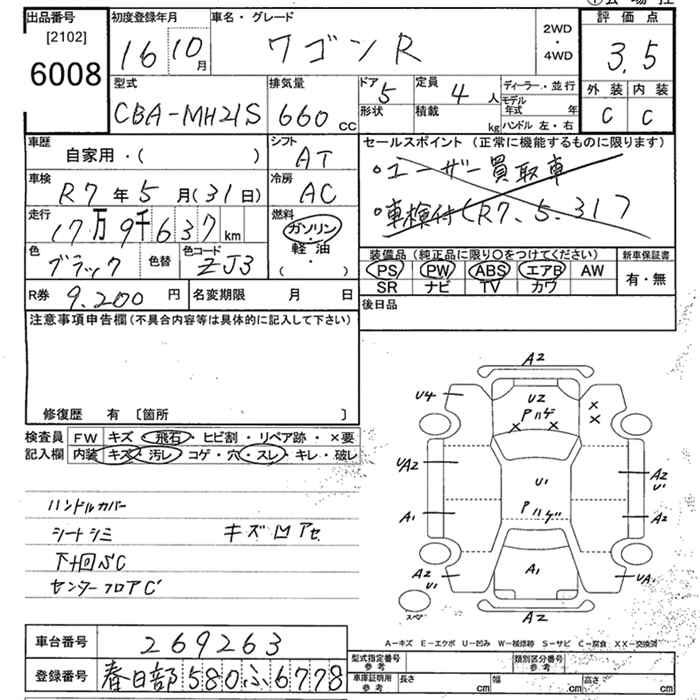 出品番号
[2102]
6008
初度登録年月
16 10月
車名・グレード
ワゴンR
2WD
・
4WD
評価点
3.5
外装 内装
C C
型式
CBA-MH21S
排気量
660 cc
ドア 5
形状
定員 4 人
積載 kg
ディーラー・並行
モデル年式 年
ハンドル 左・右
車歴
自家用・( )
シフト
AT
セールスポイント(正常に機能するものに限ります)
・ユーザー買取車
・車検付(R7.5.31)
車検
R7年5月(31日)
冷房
AC
走行
17万9千637km
燃料
ガソリン
軽・油
( ・ )
色
ブラック
色替
色コード
ZJ3
装備品(純正品に限り〇をつけてください)
PS PW ABS エアB AW
SR ナビ TV カワ
新車保証書
有・無
R券 9.200円
名変期限 月 日
後日品
注意事項申告欄(不具合内容等は具体的に記入して下さい)
修復歴 有〔箇所 〕
検査員 FW キズ・飛石・ヒビ割・リペア跡・×要
記入欄 内装 キズ・汚レ・コゲ・穴・スレ・キレ・破レ
ハンドルカバー
シートシミ
キズ凹アセ
下廻りC
センターフロアC
A2
U4
U2
Pハゲ
× ×
× ×
UA2
U1
A2
U1
A1
Pハゲ
A2
A2
U1
A1
UA1
スペア
A2
A-キズ E-エクボ U-凹み W-補修跡 S-サビ C-腐食 XX-交換済
車台番号 269263
登録番号 春日部580ふ6778
型式指定番号
参考
類別区分番号
参考
車庫証明用
参考
長さ cm 幅 cm 高さ cm